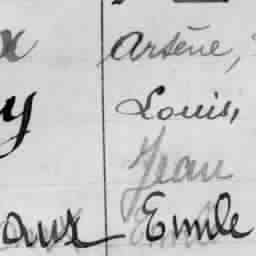 x Arsène,
y Louis,
Jean
aux Emile